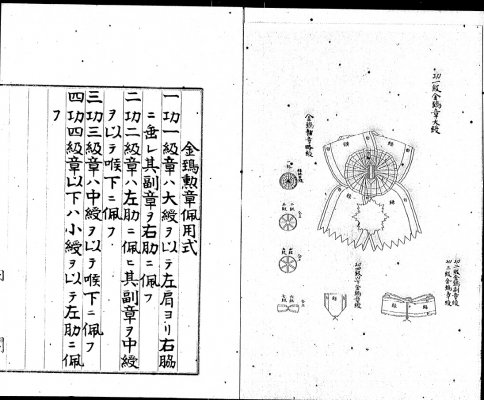 功一級金鵄章大綬
金鵄勲章略綬
功二級金鵄副章綬
功三級金鵄章綬
功四級以下金鵄章綬
緑
緑
金鵄勲章佩用式
一功一級章ハ大綬ヲ以テ左肩ヨリ右脇
ニ垂レ其副章ヲ右肋ニ佩フ
二功二級章ハ左肋ニ佩ヒ其副章ヲ中綬
ヲ以テ喉下ニ佩フ
三功三級章ハ中綬ヲ以テ喉下ニ佩フ
四功四級章以下ハ小綬ヲ以テ左肋ニ佩
フ
内
閣